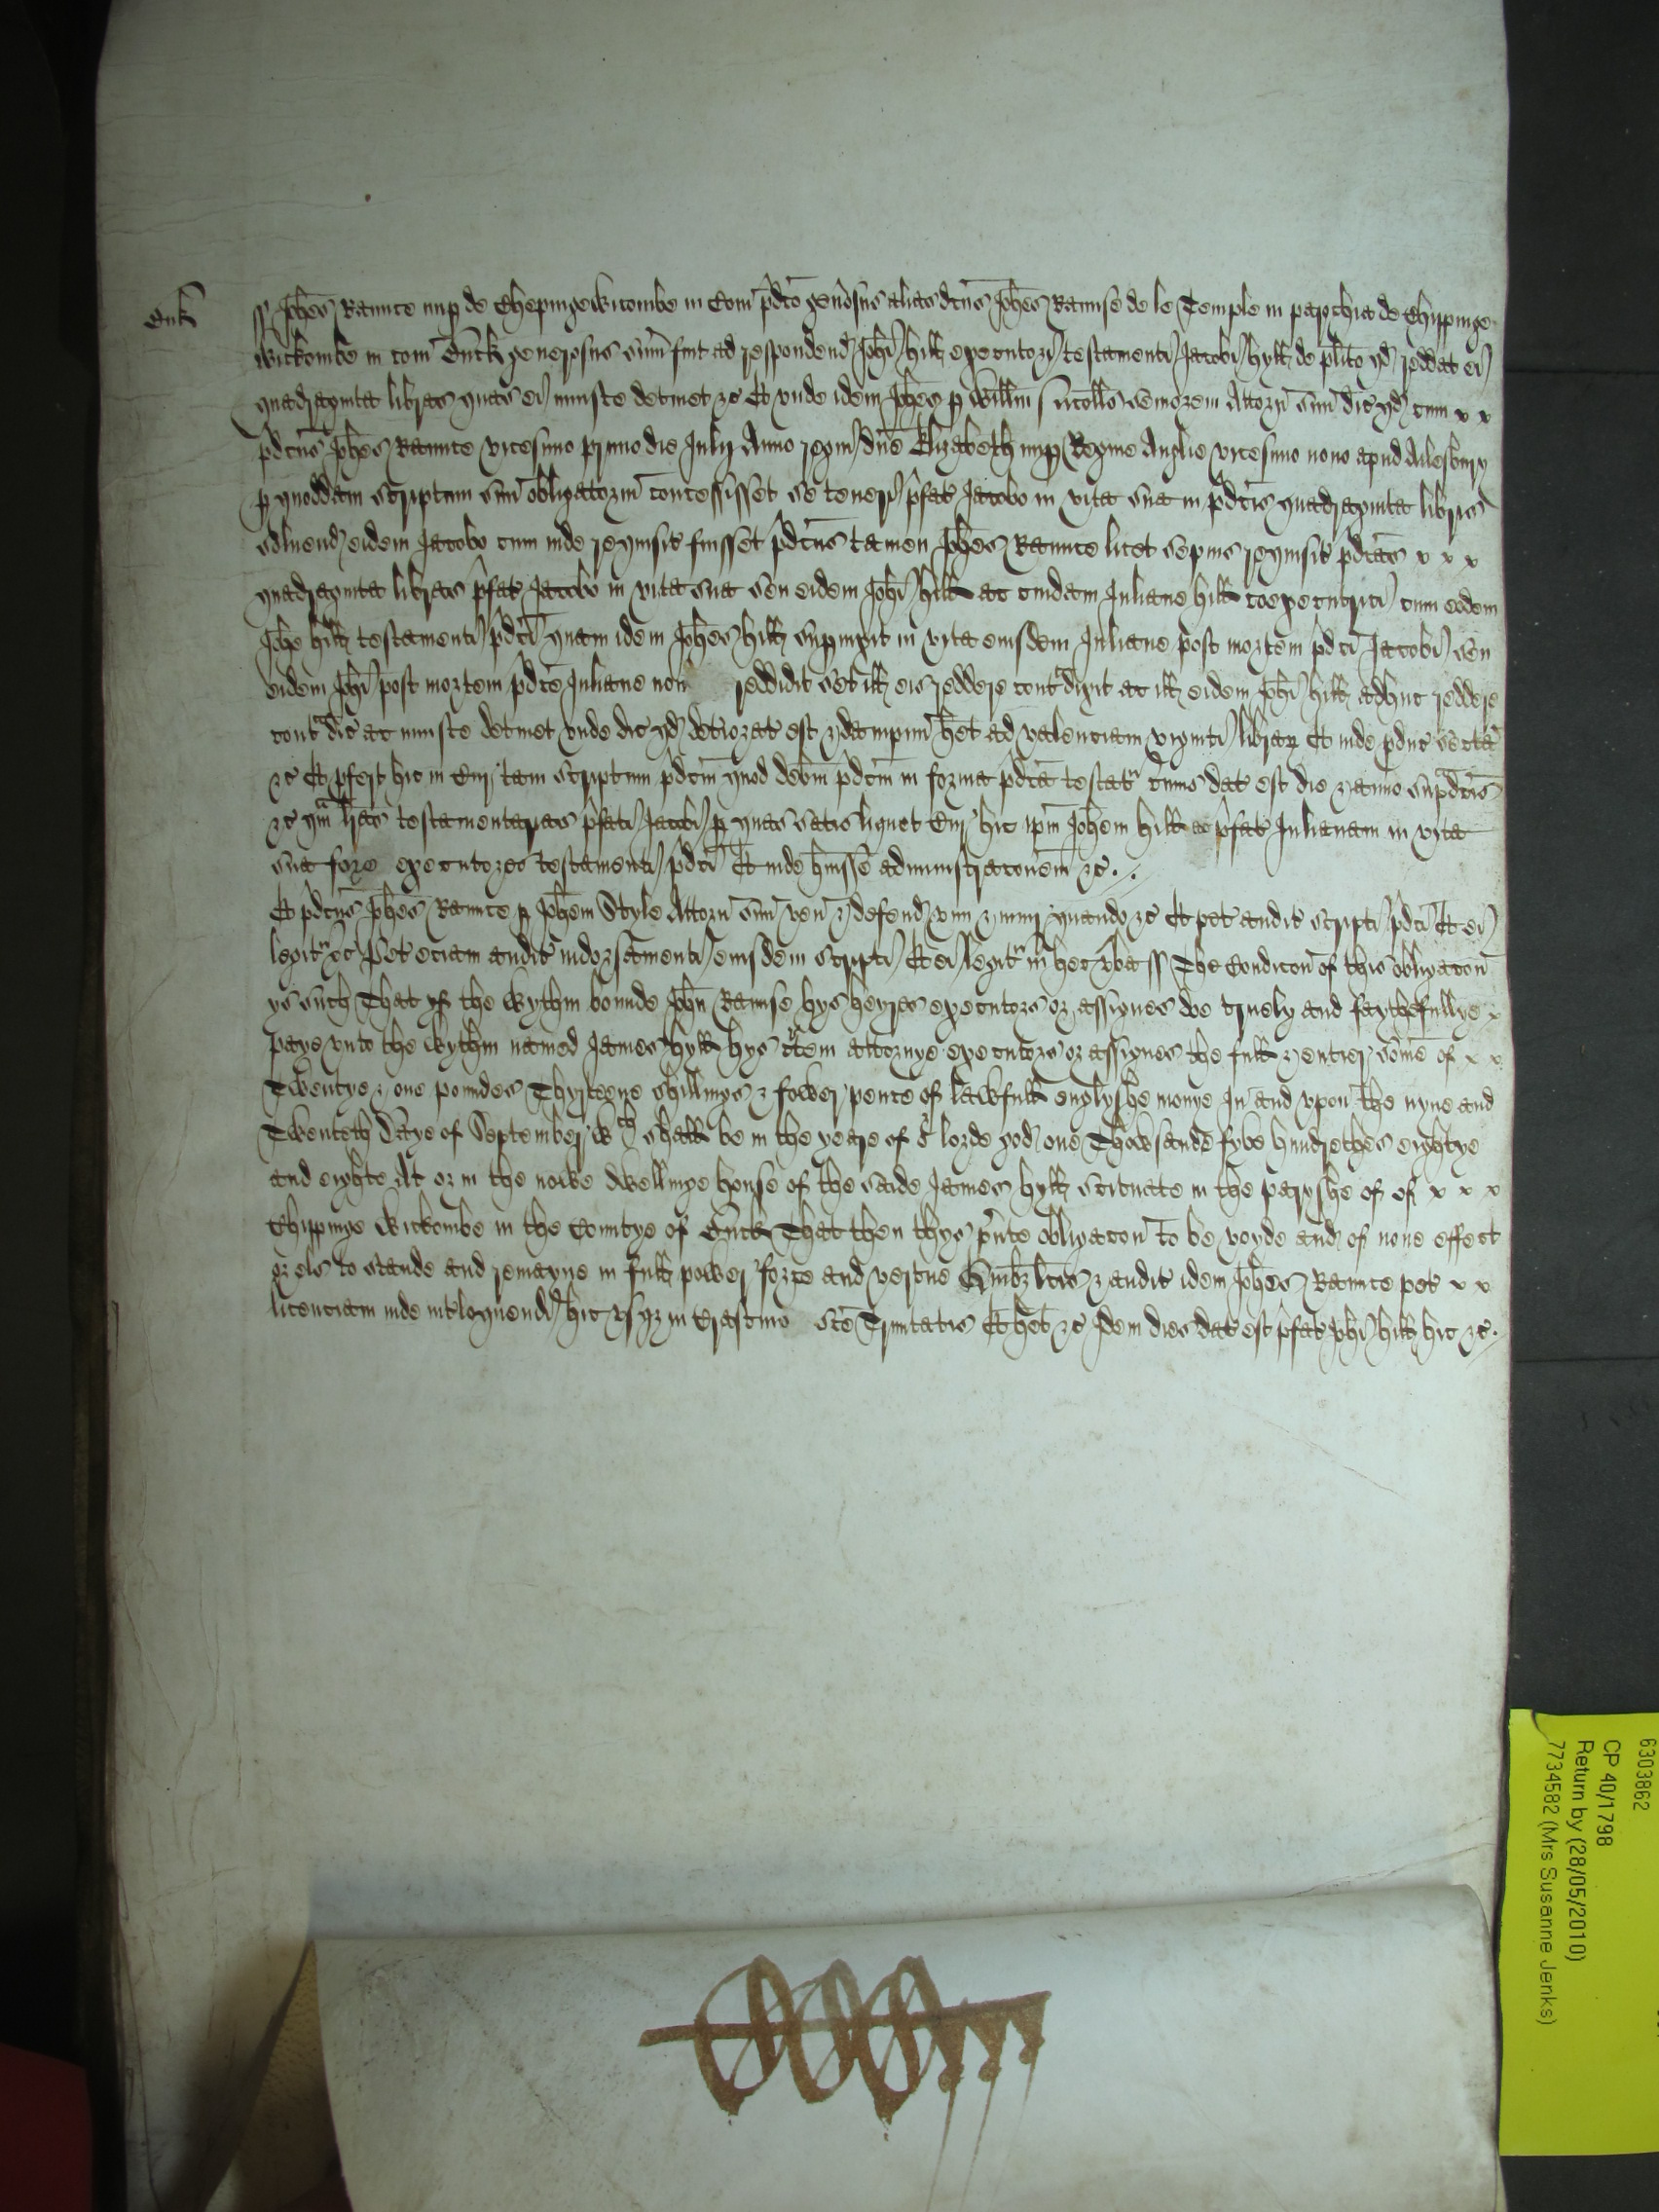 Buk
ss Joħes Raunce nup de Chepingewicombe in Com p̄dco geñosus alias dcus Joħes Raunse de le Temple in parochia de Chippinge
Wickombe in com Buck generosus sum̄ fuit ad respondend Joħi Hill executori testamenti Jacobi Hyll de plito qd reddat ei
quadraginta libras quas ei iniuste detinet &c Et unde idem Joħes p Willm seniorem Attorn suū dic qd cum x x
p̄dcus Joħes Raunce vicesimo primo die Julij Anno regni dn̄e Elizabeth nup Regine Anglie vicesimo nono apud Ailesbury
p quoddam scriptum suū obligatorium concessisset se teneri p̄fat Jacobo in vita sua in p̄dcis quadraginta libris
solvend eidem Jacobo cum inde requisit fuisset p̄dcus tamen Joħes Raunce licet sepius requisit p̄dcas x x x
quadraginta libras p̄fat Jacobo in vita sua seu eidem Joħi Hill ac cuidam Juliane Hill coexecutrici cum eodem
Joħe Hill testamenti p̄dci quam idem Joħes Hill supvixit in vita eiusdem Juliane post mortem p̄dci Jacobi seu
eidem Joħi post mortem p̄dce Juliane non reddidit set ill eis reddere contradixit ac ill eidem Joħi Hill adhuc reddere
contradic ac iniuste detinet unde dic qd deteriorat est & dampnum h̄et ad valenciam viginti librar Et inde p̄duc sectā
&c Et p̄fert hic in Cur tam scriptum p̄dcm quod debm̄ p̄dcm in forma p̄dca testatr cuius dat est die & anno supradcis
&c qm̄ lras testamentarias p̄fati Jacobi p quas satis liquet Cur hic ip̄m Joħem Hill ac p̄fat Julianam in vita
sua fore executores testamenti p̄dci Et inde h̄uisse administracōnem &c.
Et p̄dcus Joħes Raunce p Joħem Style Attorn suū ven & defend vim & iniur quando &c Et pet audit scripti p̄dci Et ei
legitr &c Pet eciam audit indorsamenti eiusdem scripti Et ei legitr in hec v̄ba ss The Condicōn of this obligacōn
ys such That yf the wythin bounde Joħn Raunse hys heyres executors or assignes doe truely and faythefullye x
paye unto the wythin named James Hyll hys c̃tem attornye executors or assignes the full & entier some of x x
Twentye & one poundes Thyrteene shillings & fower pence of lawfull englyshe monye In and upon the nyne and
Twenteth Daye of September wch shall be in the yeare of or lorde god one Thowsande fyve hundrethes eightye
and eighte At or in the nowe dwellinge house of the saide James Hyll scituate in the paryshe of of x x x
Chippinge Wickombe in the Countye of Buck That then thys p̄nte obligacōn to be voyde and of none effect
or els to stande and remayne in full power force and vertue Quibz lcis & audit idem Joħes Raunce pet x x
licenciam inde int̄loquendi hic usqz in Crastino sce Trinitatis Et h̄et &c Idem dies dat est p̄fat Joħi Hill hic &c.
6303862
CP 40/1798
Return by (28/05/2010)
7734582 (Mrs Susanne Jenks)